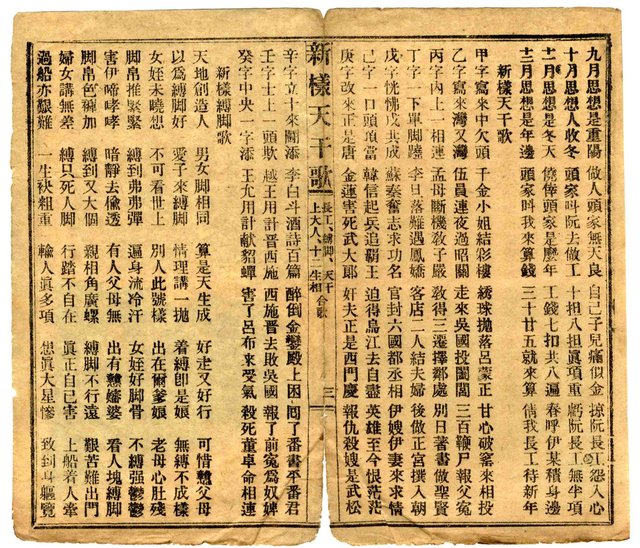 九月思想是重陽 做人頭家無天良 自己子兒痛似金 掠阮長工怨人心
十月思想人收冬 頭家叫阮去做工 十担八担眞項重 虧阮長工無半項
十一月思想是冬天 僥倖頭家是麽年 工錢七扣共八遍 春呼伊某積身邊
十二月思想是年邊 頭家呌我來算錢 三十廿五就來算 倩我長工待新年
新樣天干歌
甲字寫來中欠頭 千金小姐結彩樓 綉珠拋落呂蒙正 甘心破窰來相投
乙字寫來灣又灣 伍員連夜過昭關 走來吳國投闔閭 三百鞭尸報父寃
丙字內上一相連 孟母斷機敎子嚴 敎得三遷擇鄰處 別日著書做聖賢
丁字一下單脚蹺 李旦落難遇鳳嬌 客店二人結夫婦 後做正宮撰入朝
戊字恍惚戍共成 蘇秦奮志求功名 官封六國都丞相 伊嫂伊妻來求情
己字一口頭頂當 韓信起兵追覇王 迫得烏江去自盡 英雄至今恨茫茫
庚字改來正是唐 金運害死武大郎 奸夫正是西門慶 報仇殺嫂是武松
新樣天干歌 長工、縛脚、天干 上大人、十二生相 合歌 三
辛字立十來鬪添 李白斗酒詩百篇 醉倒金鑾殿上困 回了番書平番君
壬字士上一頭欺 越王用計晋西施 西施晋去敗吳國 報了前寃爲奴婢
癸字中央一字添 王允用計獻貂蟬 害了呂布來受氣 殺死董卓命相連
新樣縛脚歌
天地創造人 男女脚相同 算是天生成 好走又好行 可惜憨父母
以爲縛脚好 愛子來縛脚 情理講一拋 着縛卽是娘 無縛不成樣
女姪未曉想 不可看世上 別人此號樣 出在爾爹娘 老母心肚殘
脚帛推緊緊 縛到弗弗彈 遍身流冷汗 女姪好脚骨 不縛强鬱鬱
害伊啼哮哮 暗靜去偸透 有人父母無 出有戇嬌婆 看人塊縛脚
脚帛色種加 縛到又大個 親相角廣螺 縛脚不行遠 艱苦難出門
婦女講無差 縛只死人脚 行踏不自在 眞正自己害 上船着人牽
過船亦艱難 一生袂粗重 輸人眞多項 想眞大星慘 致到身軀覽